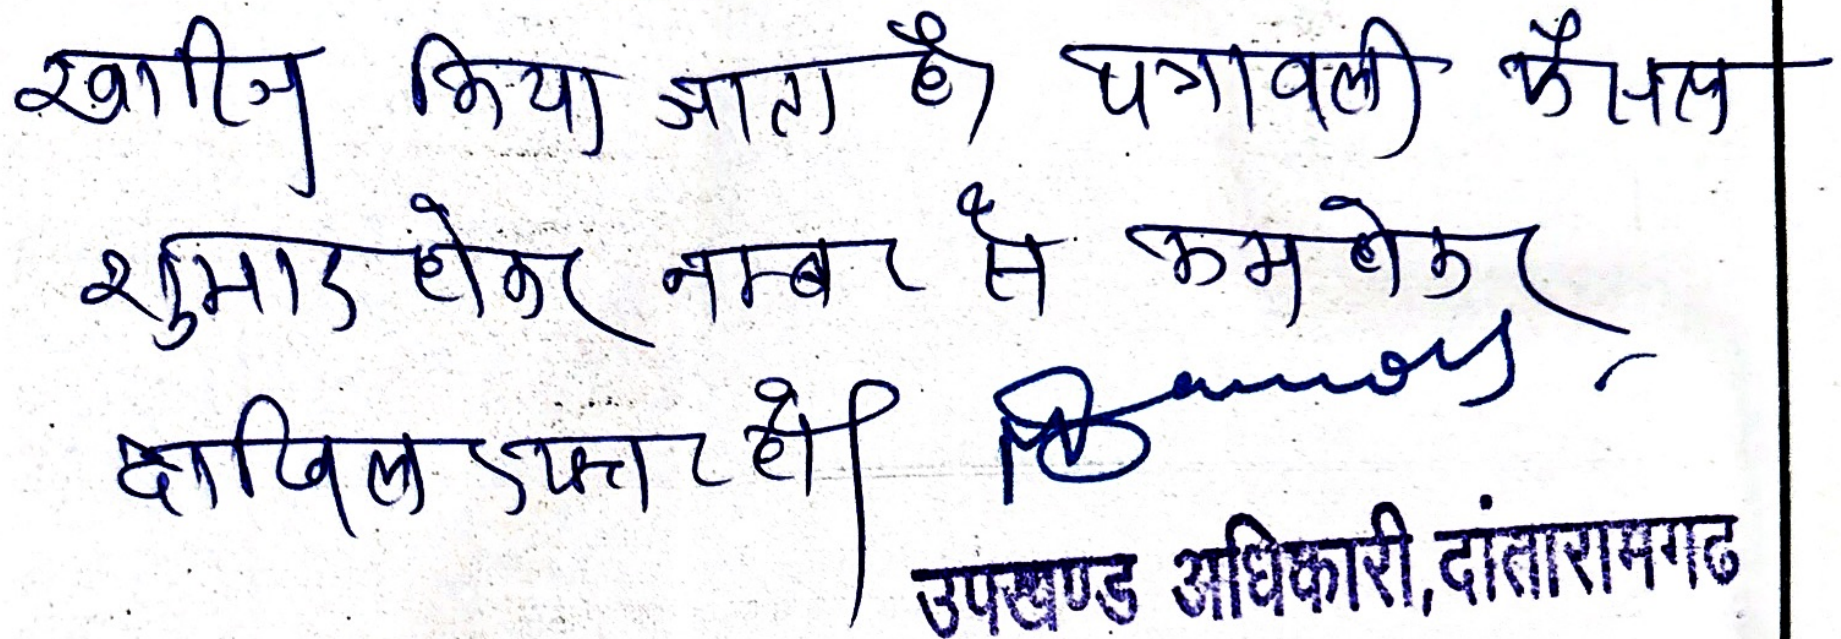 खारिज किया जाता है। पत्रावली फैसल
शुमार होकर नम्बर से कम होकर
दाखिल दफ्तर हो।
उपखण्ड अधिकारी, दांतारामगढ